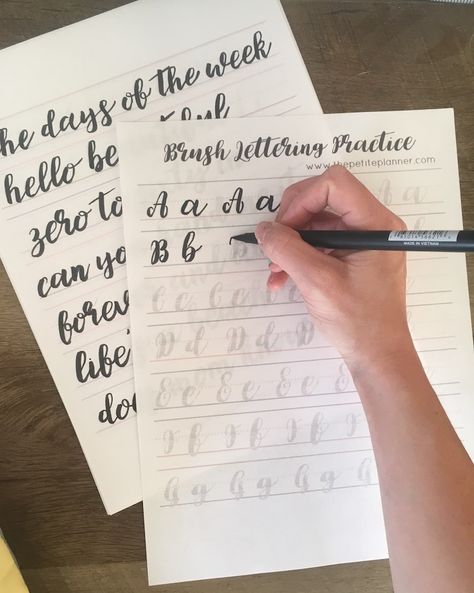 he days of the week
hello be
zero to
can you
forev
Brush Lettering Practice
www.thepetiteplanner.com
A a A a A a
B b B
C c C c C c
D d D d D d
E e E e E e
F f F f F f
G g G g G g
MADE IN VIETNAM